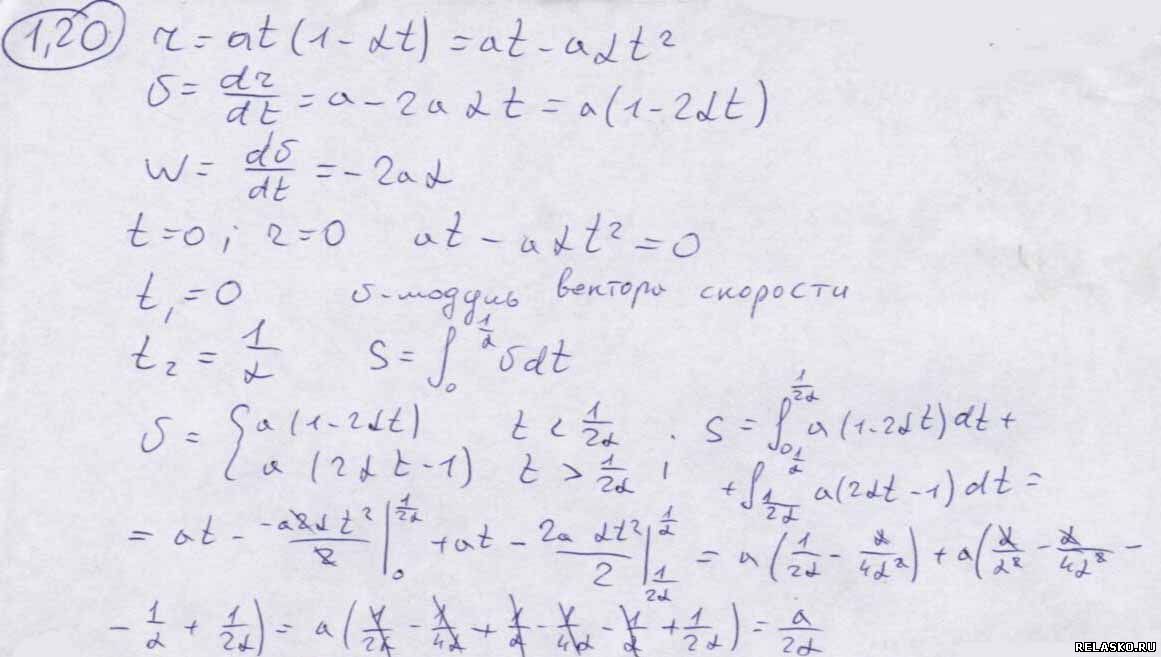 1,20 r = at(1-αt) = at - aαt²
v = dr/dt = a - 2aαt = a(1-2αt)
w = dv/dt = -2aα
t=0; r=0 at - aαt² = 0
t₁ = 0 v-модуль вектора скорости
t₂ = 1/α S = ∫₀^(1/α) v dt
v = { a(1-2αt) t < 1/2α ; S = ∫₀^(1/2α) a(1-2αt)dt +
a(2αt-1) t > 1/2α ; + ∫_(1/2α)^(1/α) a(2αt-1)dt =
= at - -a2αt²/2 |₀^(1/2α) + at - 2aαt²/2 |_(1/2α)^(1/α) = a(1/2α - α/4α²) + a(α/α² - α/4α² -
- 1/α + 1/2α) = a(1/2α - 1/4α + 1/α - 1/4α - 1/α + 1/2α) = a/2α
RELASKO.RU